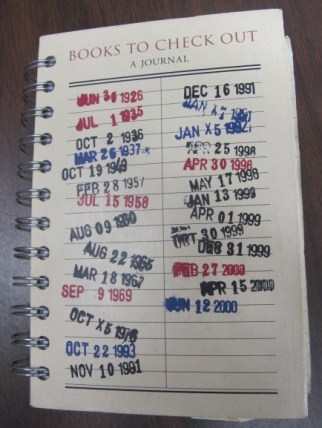 BOOKS TO CHECK OUT
A JOURNAL
JUN 30 1926
JUL 1 1935
OCT 2 1936
MAR 26 1937
OCT 19 1949
FEB 28 1957
JUL 15 1958
AUG 09 1960
AUG 22 1965
MAR 18 1967
SEP 9 1969
OCT X5 1976
OCT 22 1983
NOV 10 1991
DEC 16 1991
JAN
JAN X5 1992
APR 25 1998
APR 30 1998
MAY 17 1998
JAN 13 1999
APR 01 1999
OCT 30 1999
DEC 31 1999
FEB 27 2000
APR 15 2000
JUN 12 2000